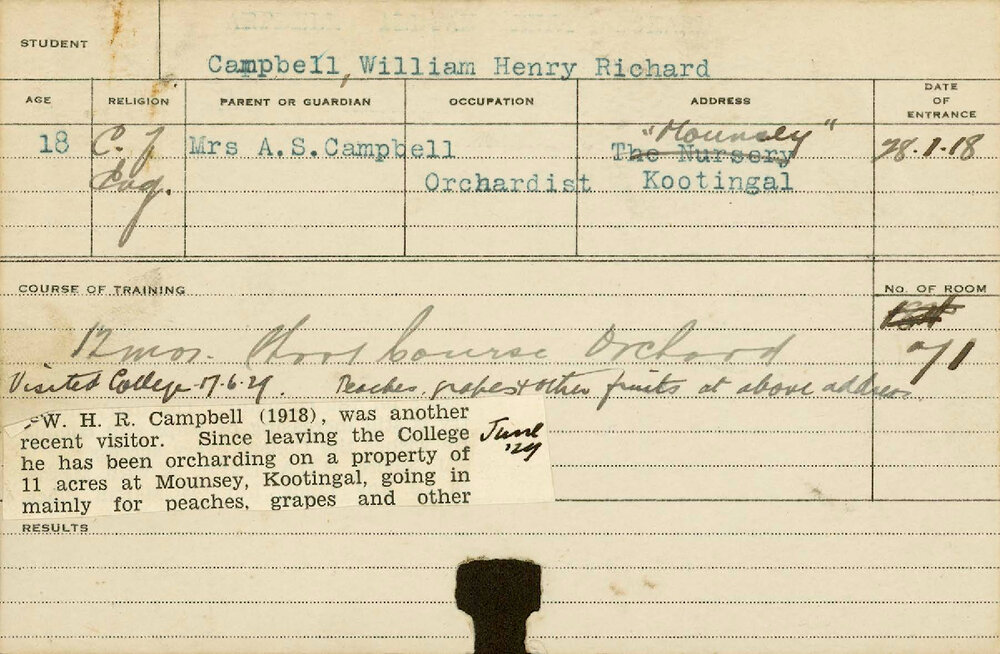 STUDENT
Campbell, William Henry Richard
AGE
RELIGION
PARENT OR GUARDIAN
OCCUPATION
ADDRESS
DATE
OF
ENTRANCE
18
C. of
Eng.
Mrs A.S.Campbell
Orchardist
"Mounsey"
The Nursery
Kootingal
28.1.18
COURSE OF TRAINING
No. OF ROOM
12 mos. Course Orchard
Visited College 17.6.29. Peaches, grapes & other fruits at above address
W. H. R. Campbell (1918), was another
recent visitor. Since leaving the College
he has been orcharding on a property of
11 acres at Mounsey, Kootingal, going in
mainly for peaches, grapes and other
June
'29
RESULTS